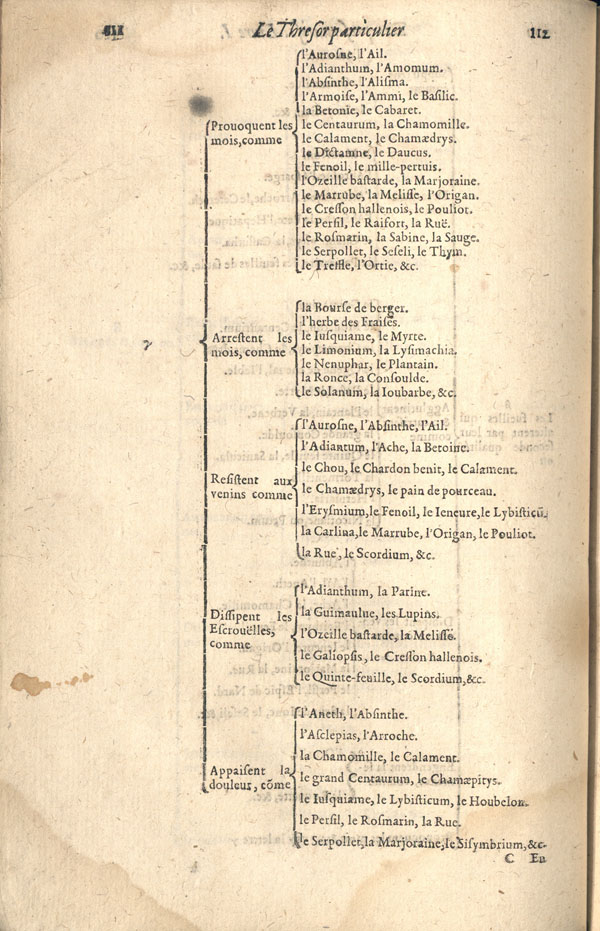 Le Thresor particulier 112
Prouoquent les
mois, comme
l'Aurosne, l'Ail.
l'Adianthum, l'Amomum.
l'Absinthe, l'Alisma.
l'Armoise, l'Ammi, le Basilic.
la Betonie, le Cabaret.
le Centaurum, la Chamomille.
le Calament, le Chamædrys.
le Dictamne, le Daucus.
le Fenoil, le mille-pertuis.
l'Ozeille bastarde, la Marjoraine.
le Marrube, la Melisse, l'Origan.
le Cresson hallenois, le Pouliot.
le Persil, le Raifort, la Ruë.
le Rosmarin, la Sabine, la Sauge.
le Serpollet, le Seseli, le Thym.
le Treffle, l'Ortie, &c.
Arrestent les
mois, comme
la Bourse de berger.
l'herbe des Fraises.
le Iusquiame, le Myrte.
le Limonium, la Lysimachia.
le Nenuphar, le Plantain.
la Ronce, la Consoulde.
le Solanum, la Ioubarbe, &c.
Resistent aux
venins comme
l'Aurosne, l'Absinthe, l'Ail.
l'Adiantum, l'Ache, la Betoine.
le Chou, le Chardon benit, le Calament.
le Chamædrys, le pain de pourceau.
l'Erysmium, le Fenoil, le Ieneure, le Lybisticū.
la Carlina, le Marrube, l'Origan, le Pouliot.
la Rue, le Scordium, &c.
Dissipent les
Escrouëlles,
comme
l'Adianthum, la Parine.
la Guimaulue, les Lupins.
l'Ozeille bastarde, la Melisse.
le Galiopsis, le Cresson hallenois.
le Quinte-feuille, le Scordium, &c.
Appaisent la
douleur, cōme
l'Aneth, l'Absinthe.
l'Asclepias, l'Arroche.
la Chamomille, le Calament.
le grand Centaurum, le Chamæpitys.
le Iusquiame, le Lybisticum, le Houbelon.
le Persil, le Rosmarin, la Rue.
le Serpollet, la Marjoraine, le Sisymbrium, &c.
C En